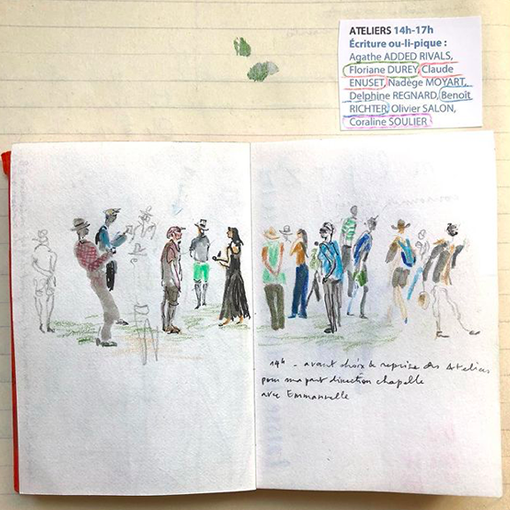 ATELIERS 14h-17h
Écriture ou-li-pique :
Agathe ADDED RIVALS,
Floriane DUREY, Claude
ENUSET, Nadège MOYART,
Delphine REGNARD, Benoît
RICHTER, Olivier SALON,
Coraline SOULIER
14h - avant choix & reprise des Ateliers
pour ma part direction chapelle
avec Emmanuelle